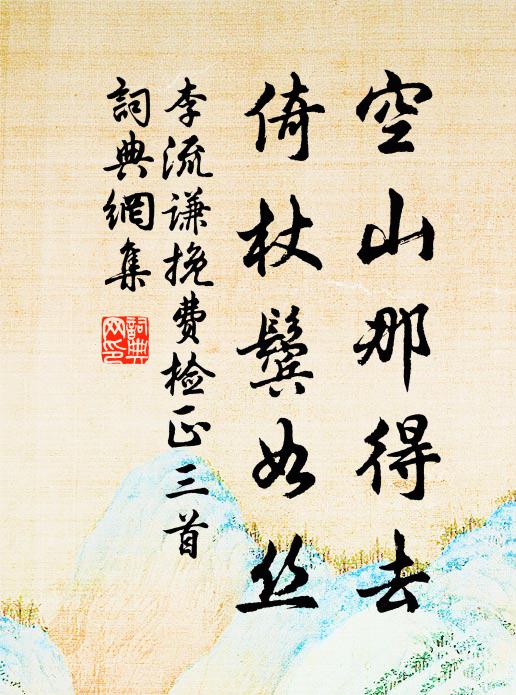 空山那得去
倚杖鬓如丝
李流谦挽费检正三首
詞典網集
詞典
网印